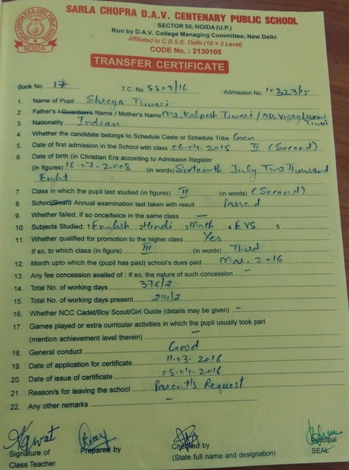 SARLA CHOPRA D.A.V. CENTENARY PUBLIC SCHOOL
SECTOR 56, NOIDA (U.P.)
Run by D.A.V. College Managing Committee, New Delhi
Affiliated to C.B.S.E. Delhi (10 + 2 Level)
CODE No. : 2130105
TRANSFER CERTIFICATE
Book No. 17 T.C. No. 5509/16 Admission No. 10323/
1. Name of Pupil Shreya Tiwari
2. Father's / Guardian's Name / Mother's Name Mr. Kalpesh Tiwari / Mrs.
3. Nationality Indian
4. Whether the candidate belongs to Schedule Caste or Schedule Tribe Gen
5. Date of first admission in the School with class 06-04-2015 II (Second)
6. Date of birth (in Christian Era according to Admission Register
(in figures) 16-07-2008 (in words) Sixteenth July Two Thousand
Eight
7. Class in which the pupil last studied (in figures) II (in words) (Second)
8. School/Board's Annual examination last taken with result Passed
9. Whether failed, if so once/twice in the same class —
10. Subjects Studied: 1 English 2 Hindi 3 Math 4 EVS 5
11. Whether qualified for promotion to the higher class Yes
If so, to which class (in figure) III (in words) Third
12. Month upto which the (pupil has paid) school's dues paid Mar. 2016
13. Any fee concession availed of : if so, the nature of such concession —
14. Total No. of working days
15. Total No. of working days present
16. Whether NCC Cadet/Boy Scout/Girl Guide (details may be given) —
17. Games played or extra curricular activities in which the pupil usually took part
(mention achievement level therein) —
18. General conduct Good
19. Date of application for certificate 11-03-2016
20. Date of issue of certificate 05-04-2016
21. Reason/s for leaving the school Parent's Request
22. Any other remarks —
Signature of Class Teacher
Prepared by
Checked by
(State full name and designation)
Principal
SEAL